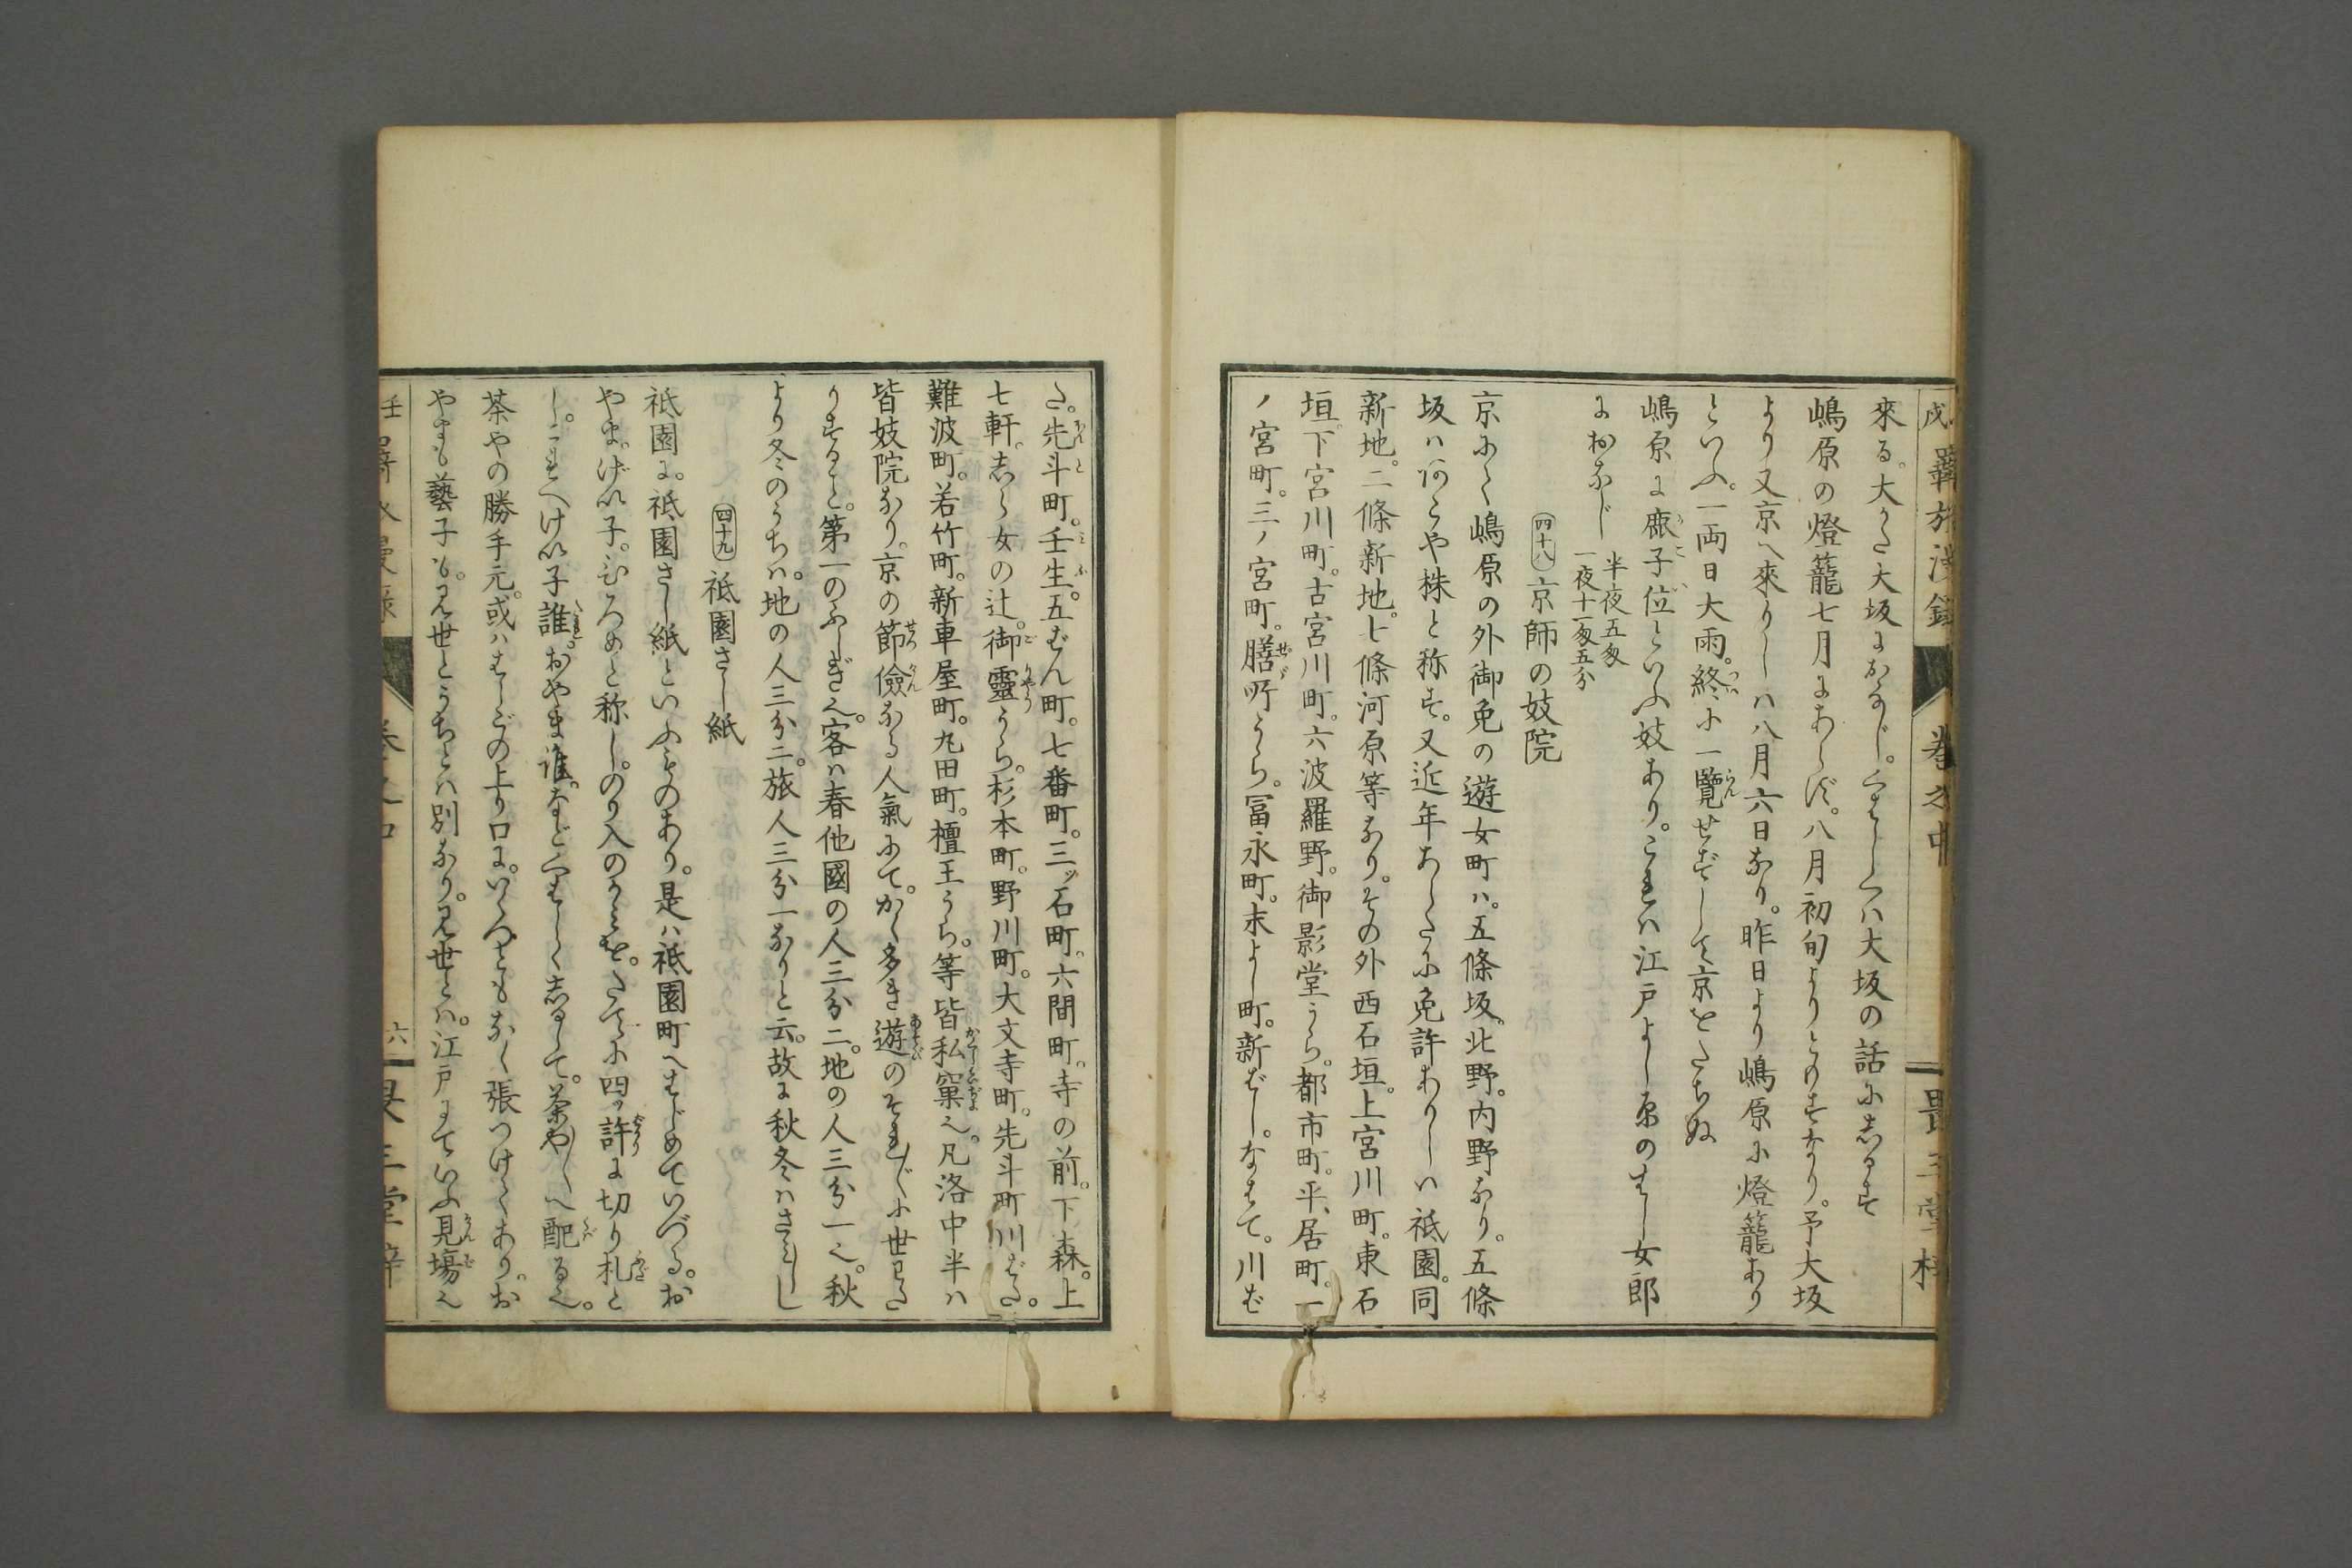 戌羇旅漫録 巻之中 畏三堂梓
來る。大かた大坂におなじ。くはしくハ大坂の話にしるす
嶋原の燈籠七月にあらず。八月初旬よりとぼすなり。予大坂
より又京へ來りしハ八月六日なり。昨日より嶋原に燈籠あり
といふ。一両日大雨。終に一覽せずして京をたちぬ
嶋原に鹿子位といふ妓あり。これハ江戸よし原のはし女郎
におなじ 半夜五匁 一夜十一匁五分
四十八 京師の妓院
京にて嶋原の外御免の遊女町ハ。五條坂。北野。内野なり。五條
坂ハ何こや株と称す。又近年あらたに免許ありしハ祇園。同
新地。二條新地。七條河原等なり。その外西石垣。上宮川町。東石
垣。下宮川町。古宮川町。六波羅野。御影堂うら。都市町。平居町。一
ノ宮町。三ノ宮町。膳所うら。冨永町。末よし町。新ばし。なはて。川ば
た。先斗町。壬生。五ばん町。七番町。三ッ石町。六間町。寺の前。下森。上
七軒。しら女の辻。御靈うら。杉本町。野川町。大文寺町。先斗町川ばた。
難波町。若竹町。新車屋町。丸田町。檀王うら。等皆私窠也。凡洛中半ハ
皆妓院なり。京の節儉なる人氣にて。かく多き遊のそれ〴〵に世わた
りすること。第一のふしぎ也。客ハ春他國の人三分二。地の人三分一也。秋
より冬のうちハ。地の人三分二。旅人三分一なりと云。故に秋冬ハさみし
四十九 祇園さし紙
祇園に。祇園さし紙といふものあり。是ハ祇園町へはじめていづる。お
やま。げい子。ひろめと称し。のり入のかみを。たてに四ッ許に切り札と
し。これへけい子誰。おやま誰。などくはしくしるして。茶や〳〵へ配る也。
茶やの勝手元。或ハはしごの上り口に。いくつともなく張つけてあり。お
やまも藝子も。見世とうちとハ別なり。見世とハ。江戸にていふ見場也
壬戌羇旅漫録 巻之中 六 畏三堂梓